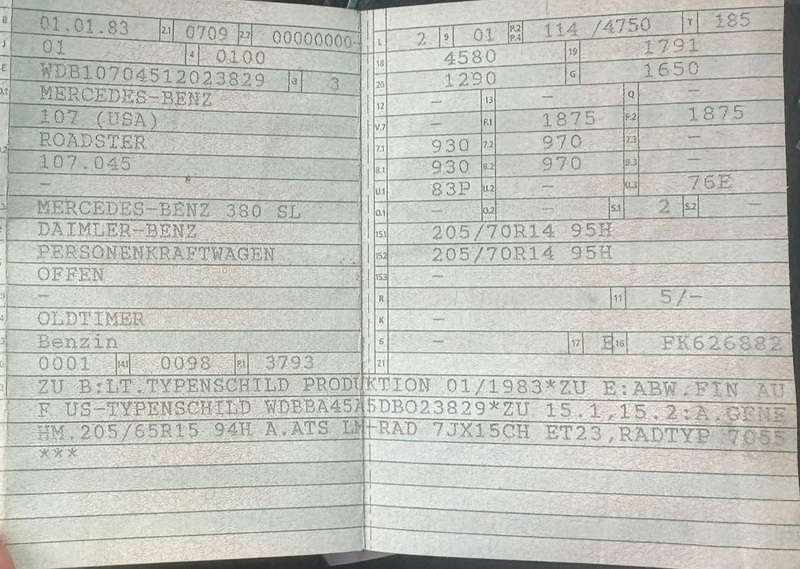 B 01.01.83 2.1 0709 2.2 00000000-
J 01 4 0100
E WDB10704512023829 3 3
MERCEDES-BENZ
107 (USA)
ROADSTER
107.045
-
MERCEDES-BENZ 380 SL
DAIMLER-BENZ
PERSONENKRAFTWAGEN
OFFEN
-
OLDTIMER
Benzin
0001 14.1 0098 P.1 3793
L 2 9 01 P.2 P.4 114 /4750 T 185
18 4580 19 1791
20 1290 G 1650
12 - 13 - Q -
V.7 - F.1 1875 F.2 1875
7.1 930 7.2 970 7.3 -
8.1 930 8.2 970 8.3 -
U.1 83P U.2 - U.3 76E
O.1 - O.2 - S.1 2 S.2 -
15.1 205/70R14 95H
15.2 205/70R14 95H
15.3 -
R 11 5/-
K -
6 - 17 E 16 FK626882
21
ZU B:LT.TYPENSCHILD PRODUKTION 01/1983*ZU E:ABW.FIN AU
F US-TYPENSCHILD WDBBA45A5DB023829*ZU 15.1,15.2:A.GENE
HM.205/65R15 94H A.ATS LM-RAD 7JX15CH ET23,RADTYP 7055
***